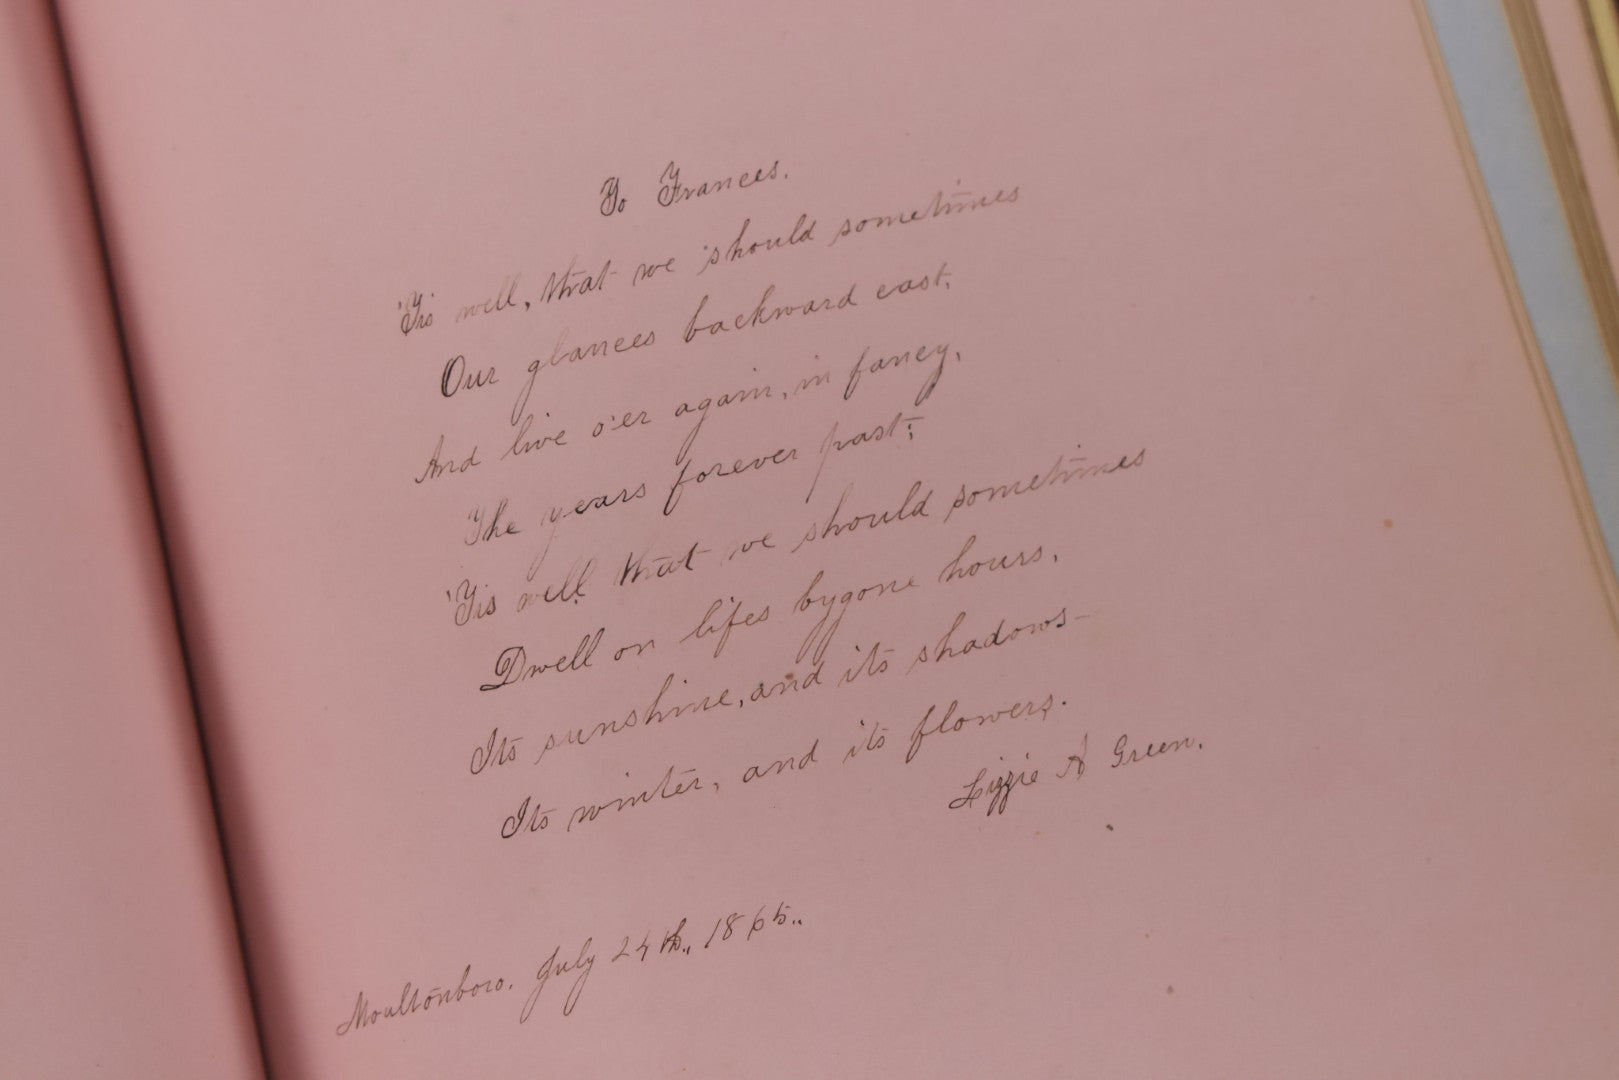 To Frances.
'Tis well, that we should sometimes
Our glances backward cast,
And live o'er again, in fancy,
The years forever past;
'Tis well that we should sometimes
Dwell on lifes bygone hours,
Its sunshine, and its shadows–
Its winter, and its flowers.
Lizzie A Green.
Moultonboro. July 24th., 1865..